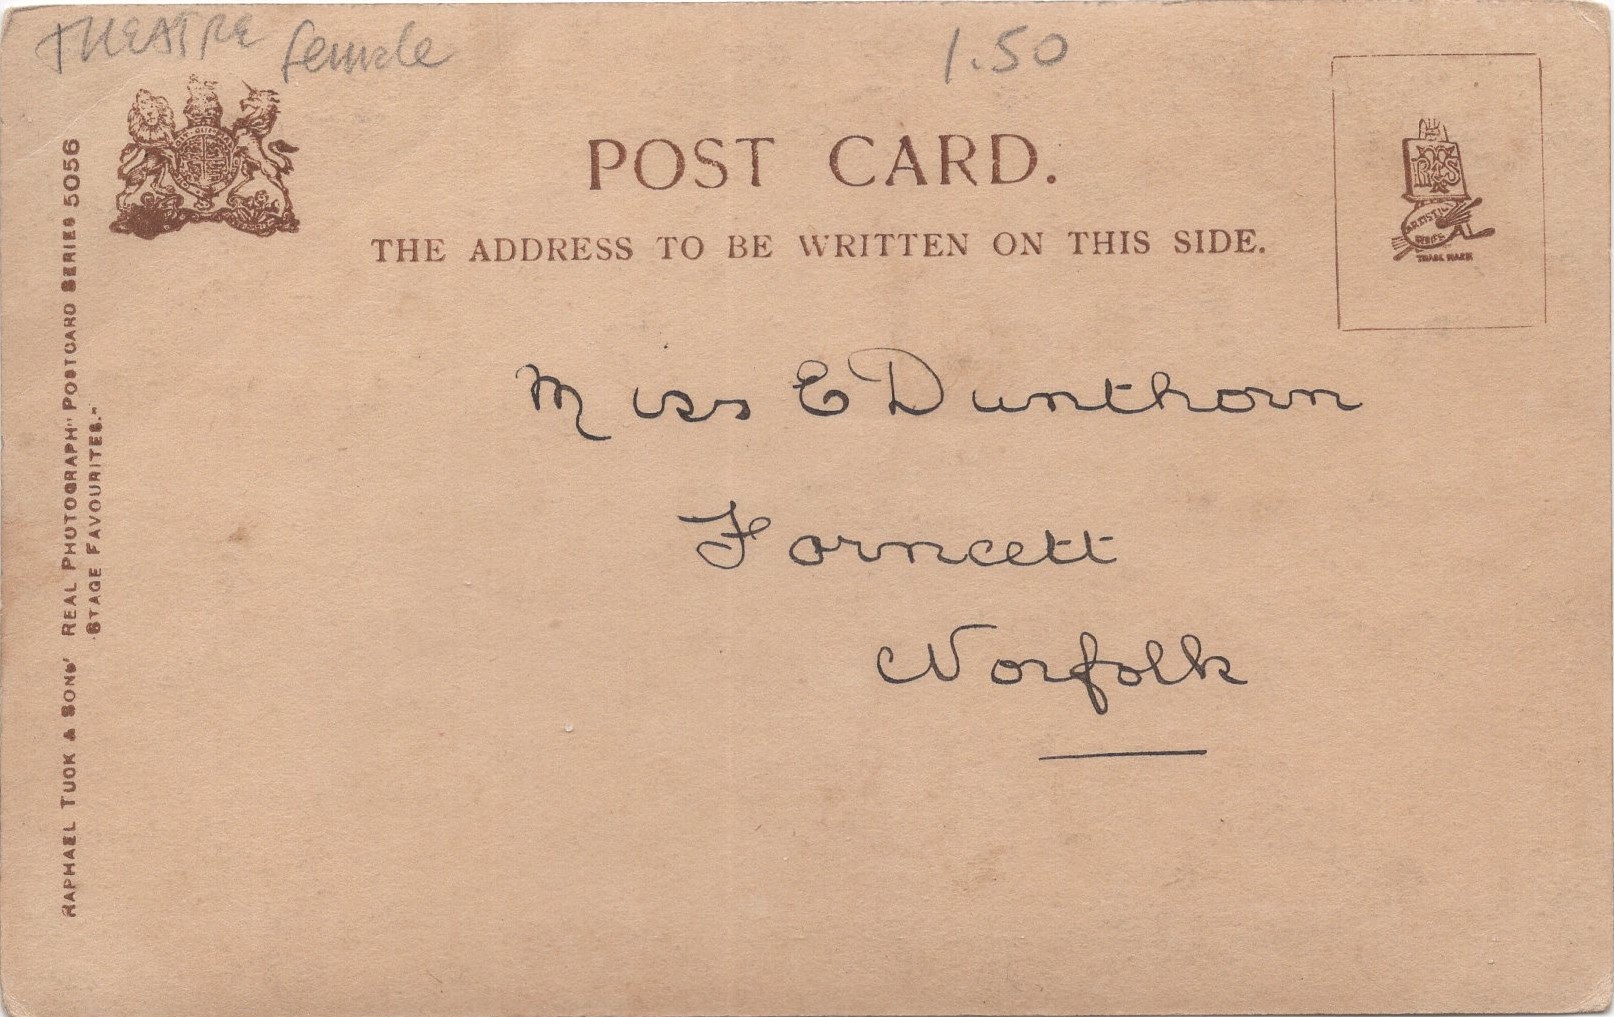 THEATRE female
1.50
POST CARD.
THE ADDRESS TO BE WRITTEN ON THIS SIDE.
RAPHAEL TUCK & SONS' "REAL PHOTOGRAPH" POSTCARD SERIES 5056
"STAGE FAVOURITES."
ARTISTIC
SERIES
TRADE MARK
Miss E Dunthorn
Forncett
Norfolk